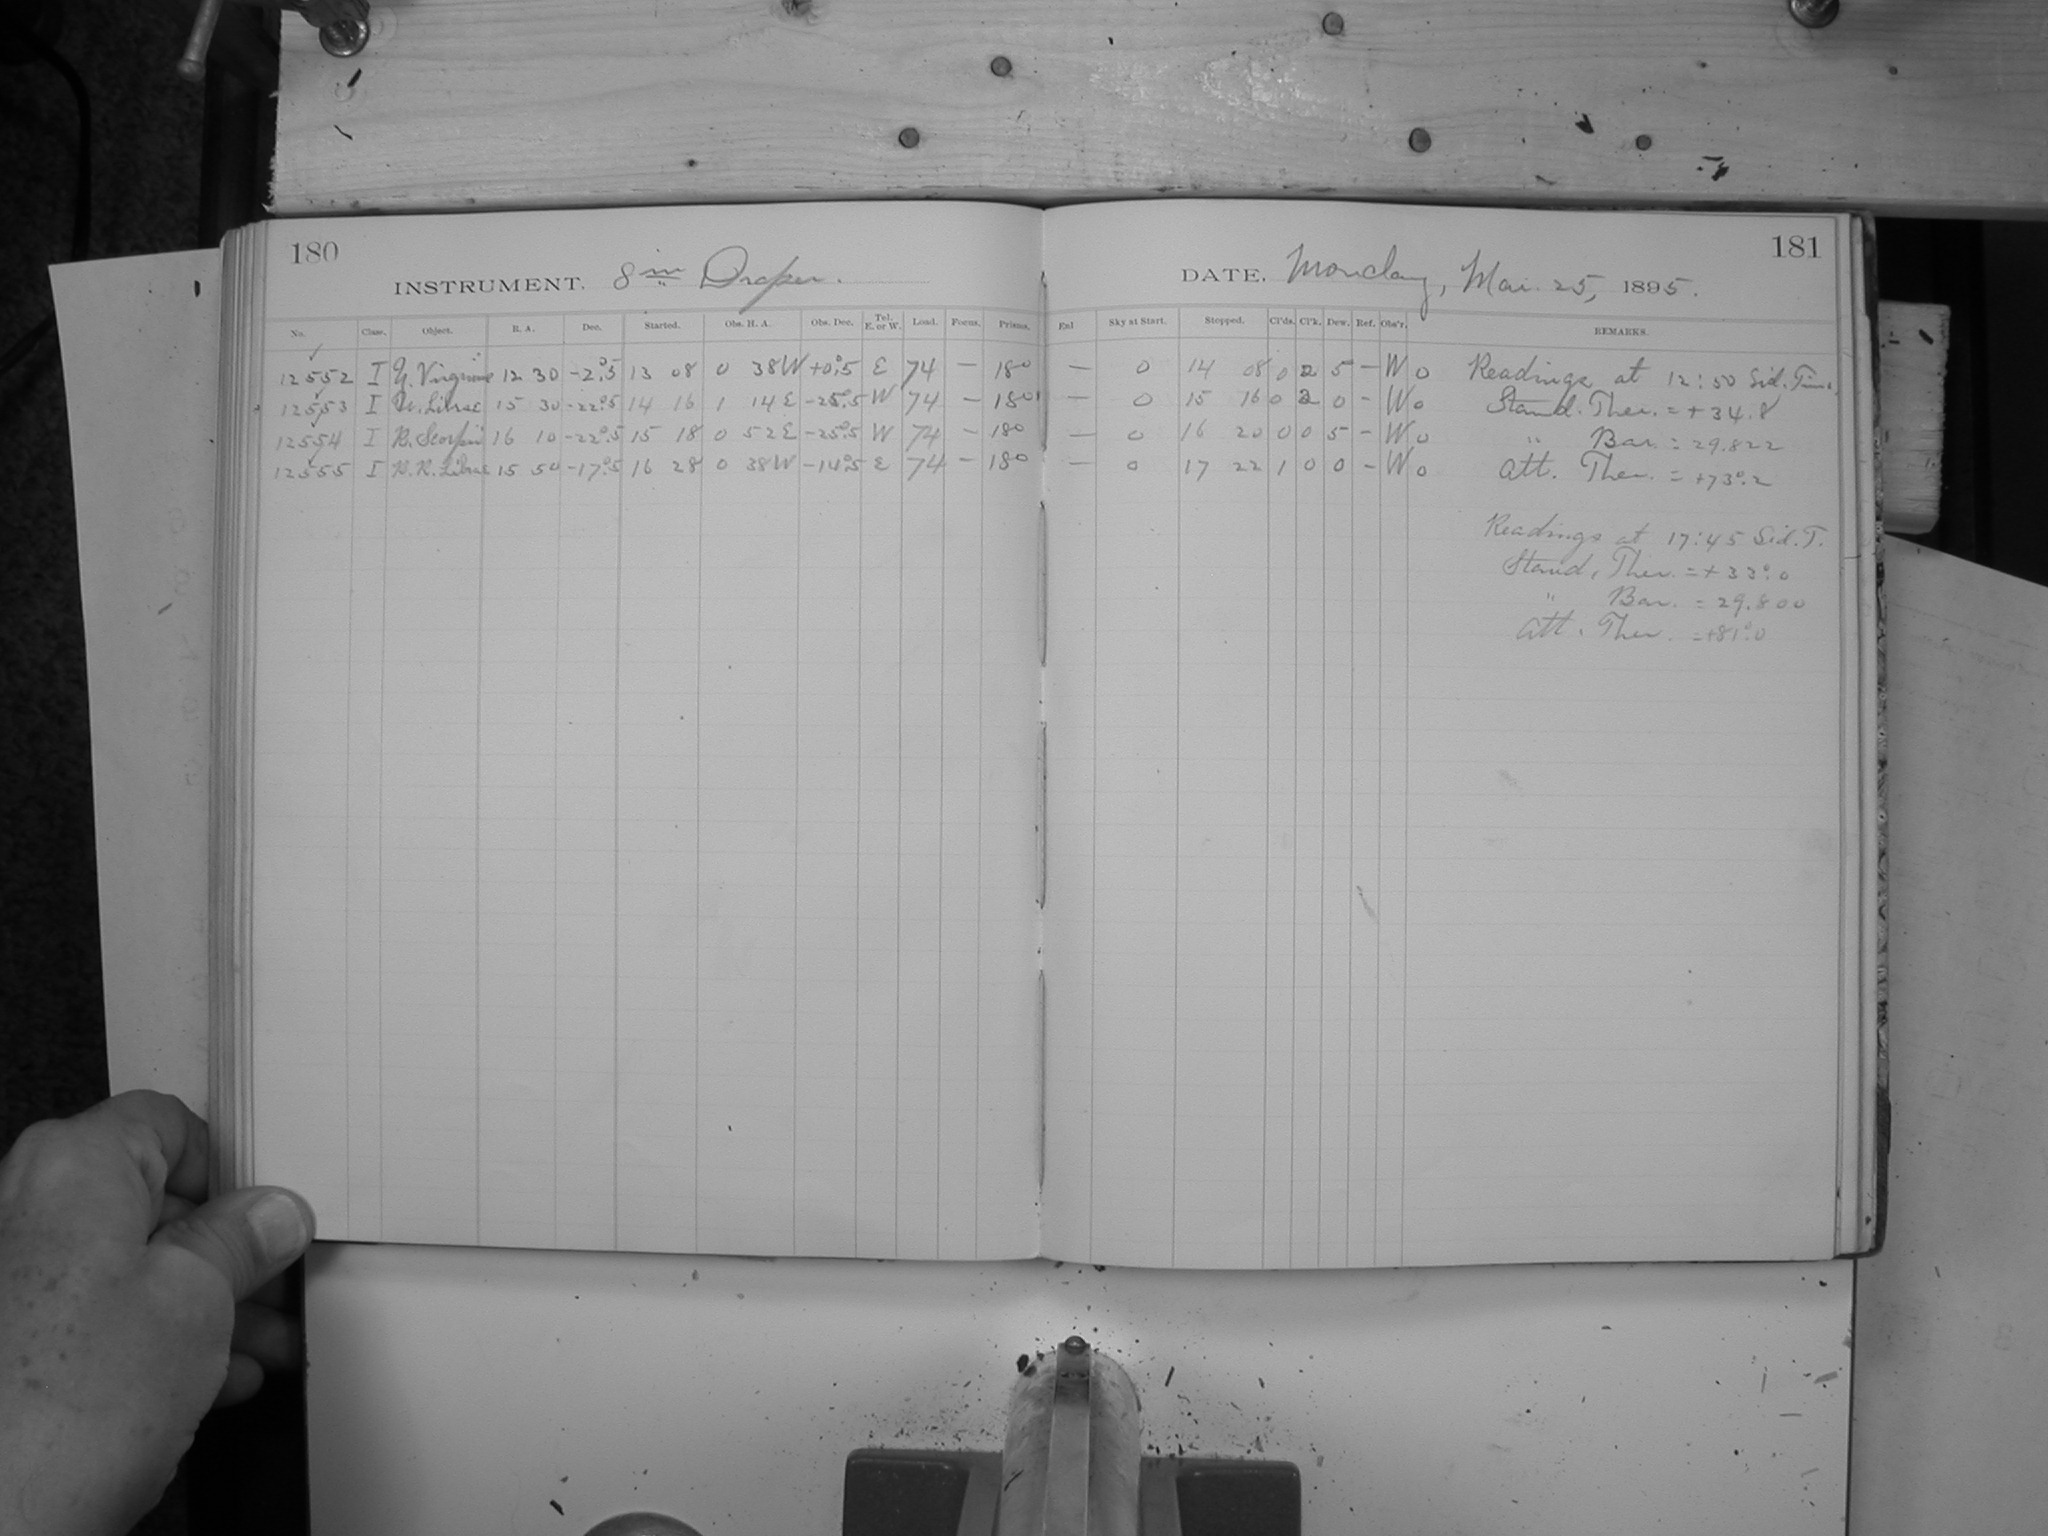 180
INSTRUMENT. 8 in Draper.
No. Class. Object. R. A. Dec. Started. Obs. H. A. Obs. Dec. Tel. E. or W. Load. Focus. Prisms.
12552 I Virginis 12 30 -2°.5 13 08 0 38W +0°.5 E 74 — 180
12553 I Librae 15 30 -22°.5 14 16 1 14E -25°.5 W 74 — 180
12554 I R. Scorpii 16 10 -22°.5 15 18 0 52E -25°.5 W 74 — 180
12555 I R. Librae 15 50 -17°.5 16 28 0 38W -14°.5 E 74 — 180
181
DATE. Monday, Mar. 25, 1895.
Exl Sky at Start. Stopped. Cl'ds. Cl'k. Dew. Ref. Obs'r. REMARKS.
— 0 14 08 0 2 5 – W 0 Readings at 12:50 Sid. Time
— 0 15 16 0 2 0 – W 0 Stand. Ther. = +34.8
— 0 16 20 0 0 5 – W 0 " Bar. = 29.822
— 0 17 22 1 0 0 – W 0 Att. Ther. = +73°.2
Readings at 17:45 Sid. T.
Stand. Ther. = +33°.0
" Bar. = 29.800
Att. Ther. = +81°.0